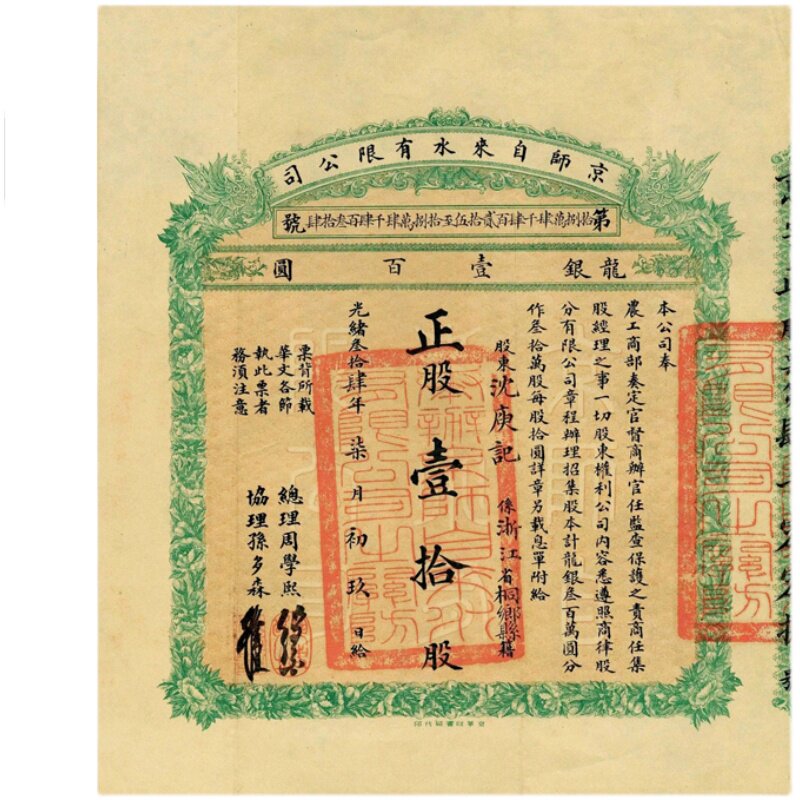 京師自來水有限公司
第拾捌萬肆千肆百貳拾伍至拾捌萬肆千肆百叁拾肆號
龍銀壹百圓
本公司奉
農工商部奏定官督商辦官任監查保護之責商任集
股經理之事一切股東權利公司內容悉遵照商律股
分有限公司章程辦理招集股本計龍銀叁百萬圓分
作叁拾萬股每股拾圓詳章另載息單附給
股東沈庚記 係浙江省桐鄉縣籍
正股壹拾股
光緒叁拾肆年柒月初玖日給
票背所載
華文各節
執此票者
務須注意
總理周學熙
協理孫多森